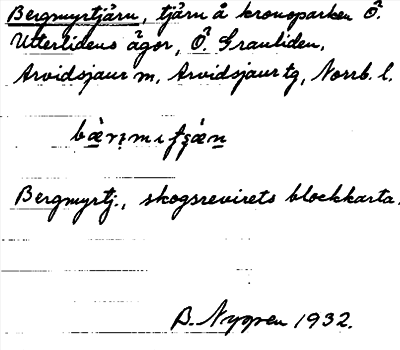 Bergmyrtjärn, tjärn å kronoparken Ö.
Utterlidens ägor, Ö. Granliden,
Arvidsjaur sn, Arvidsjaur tg, Norrb. l.
Bergmyrtj., skogsrevirets blockkarta.
B. Nygren 1932.